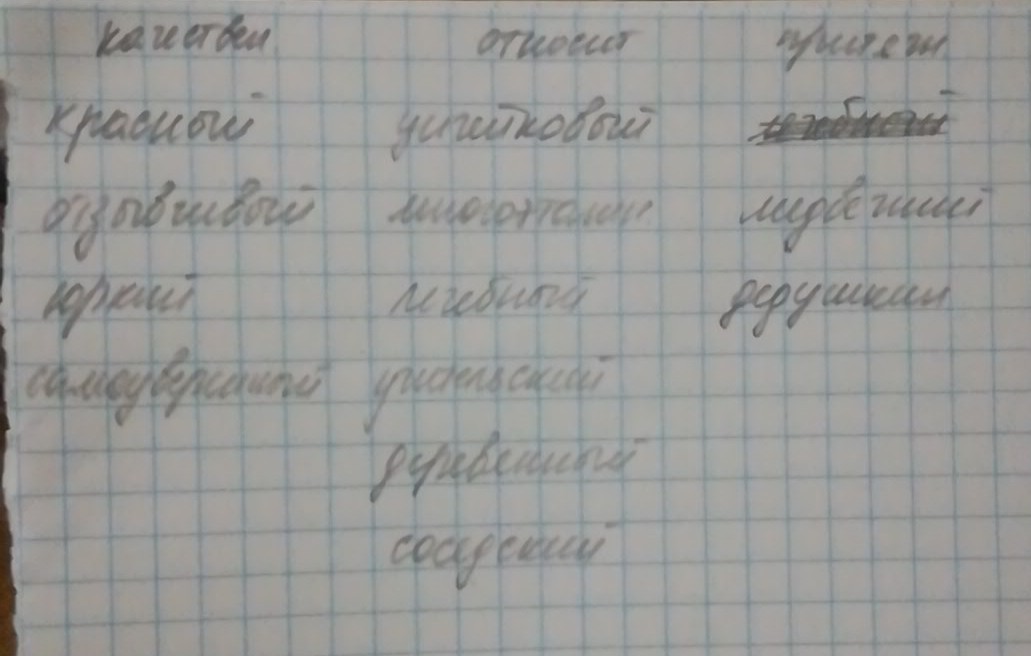 качествен относит притяж
красный учитковый
отзывчивый многоэтажн медвежий
юркий лечебный дедушкин
самоуверенный учительский
деревенный
соседский